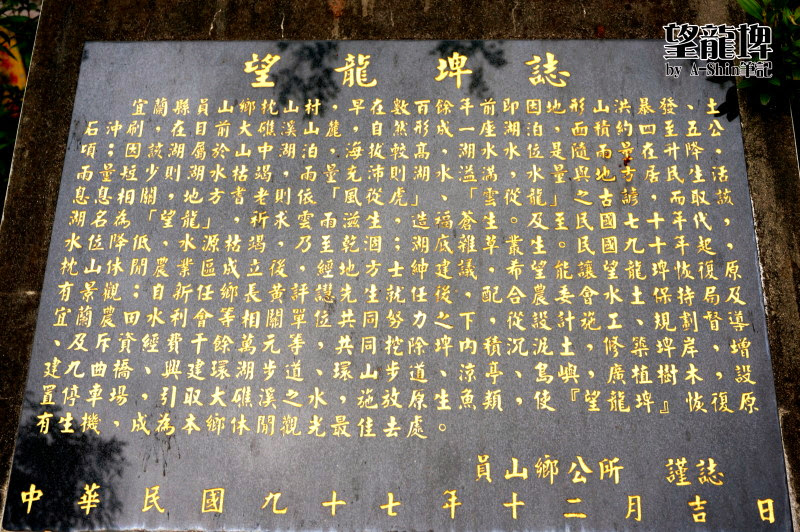 望龍埤
by A-Shin筆記
望龍埤誌
宜蘭縣員山鄉枕山村，早在數百餘年前即因地形山洪暴發、土
石沖刷，在日前大礁溪山麓，自然形成一座湖泊，面積約四至五公
頃；因該湖屬於山中湖泊，海拔較高，湖水水位隨雨量在升降，
雨量短少則湖水枯竭，雨量充沛則湖水溢滿，是與地方居民生活
息息相關，地方耆老則依「風從虎」、「雲從龍」之古諺，而取該
湖名為「望龍」，祈求雲雨滋生，造福蒼生。及至民國七十年代，
水位降低、水源枯竭，乃至乾涸；湖底雜草叢生。民國九十年起，
枕山休閒農業區成立後，經地方士紳建議，希望能讓望龍埤恢復原
有景觀；自新任鄉長黃評諰先生就任後，配合農委會水土保持局及
宜蘭農田水利會等相關單位共同努力之下，從設計施工、規劃督導
、及斥資經費千餘萬元等，共同挖除埤內積沉泥土，修築埤岸，增
建九曲橋、興建環湖步道、環山步道、涼亭、島嶼，廣植樹木，設
置停車場，引取大礁溪之水，施放原生魚類，使『望龍埤』恢復原
有生機，成為本鄉休閒觀光最佳去處。
員山鄉公所　謹誌
中華民國九十七年十二月吉日